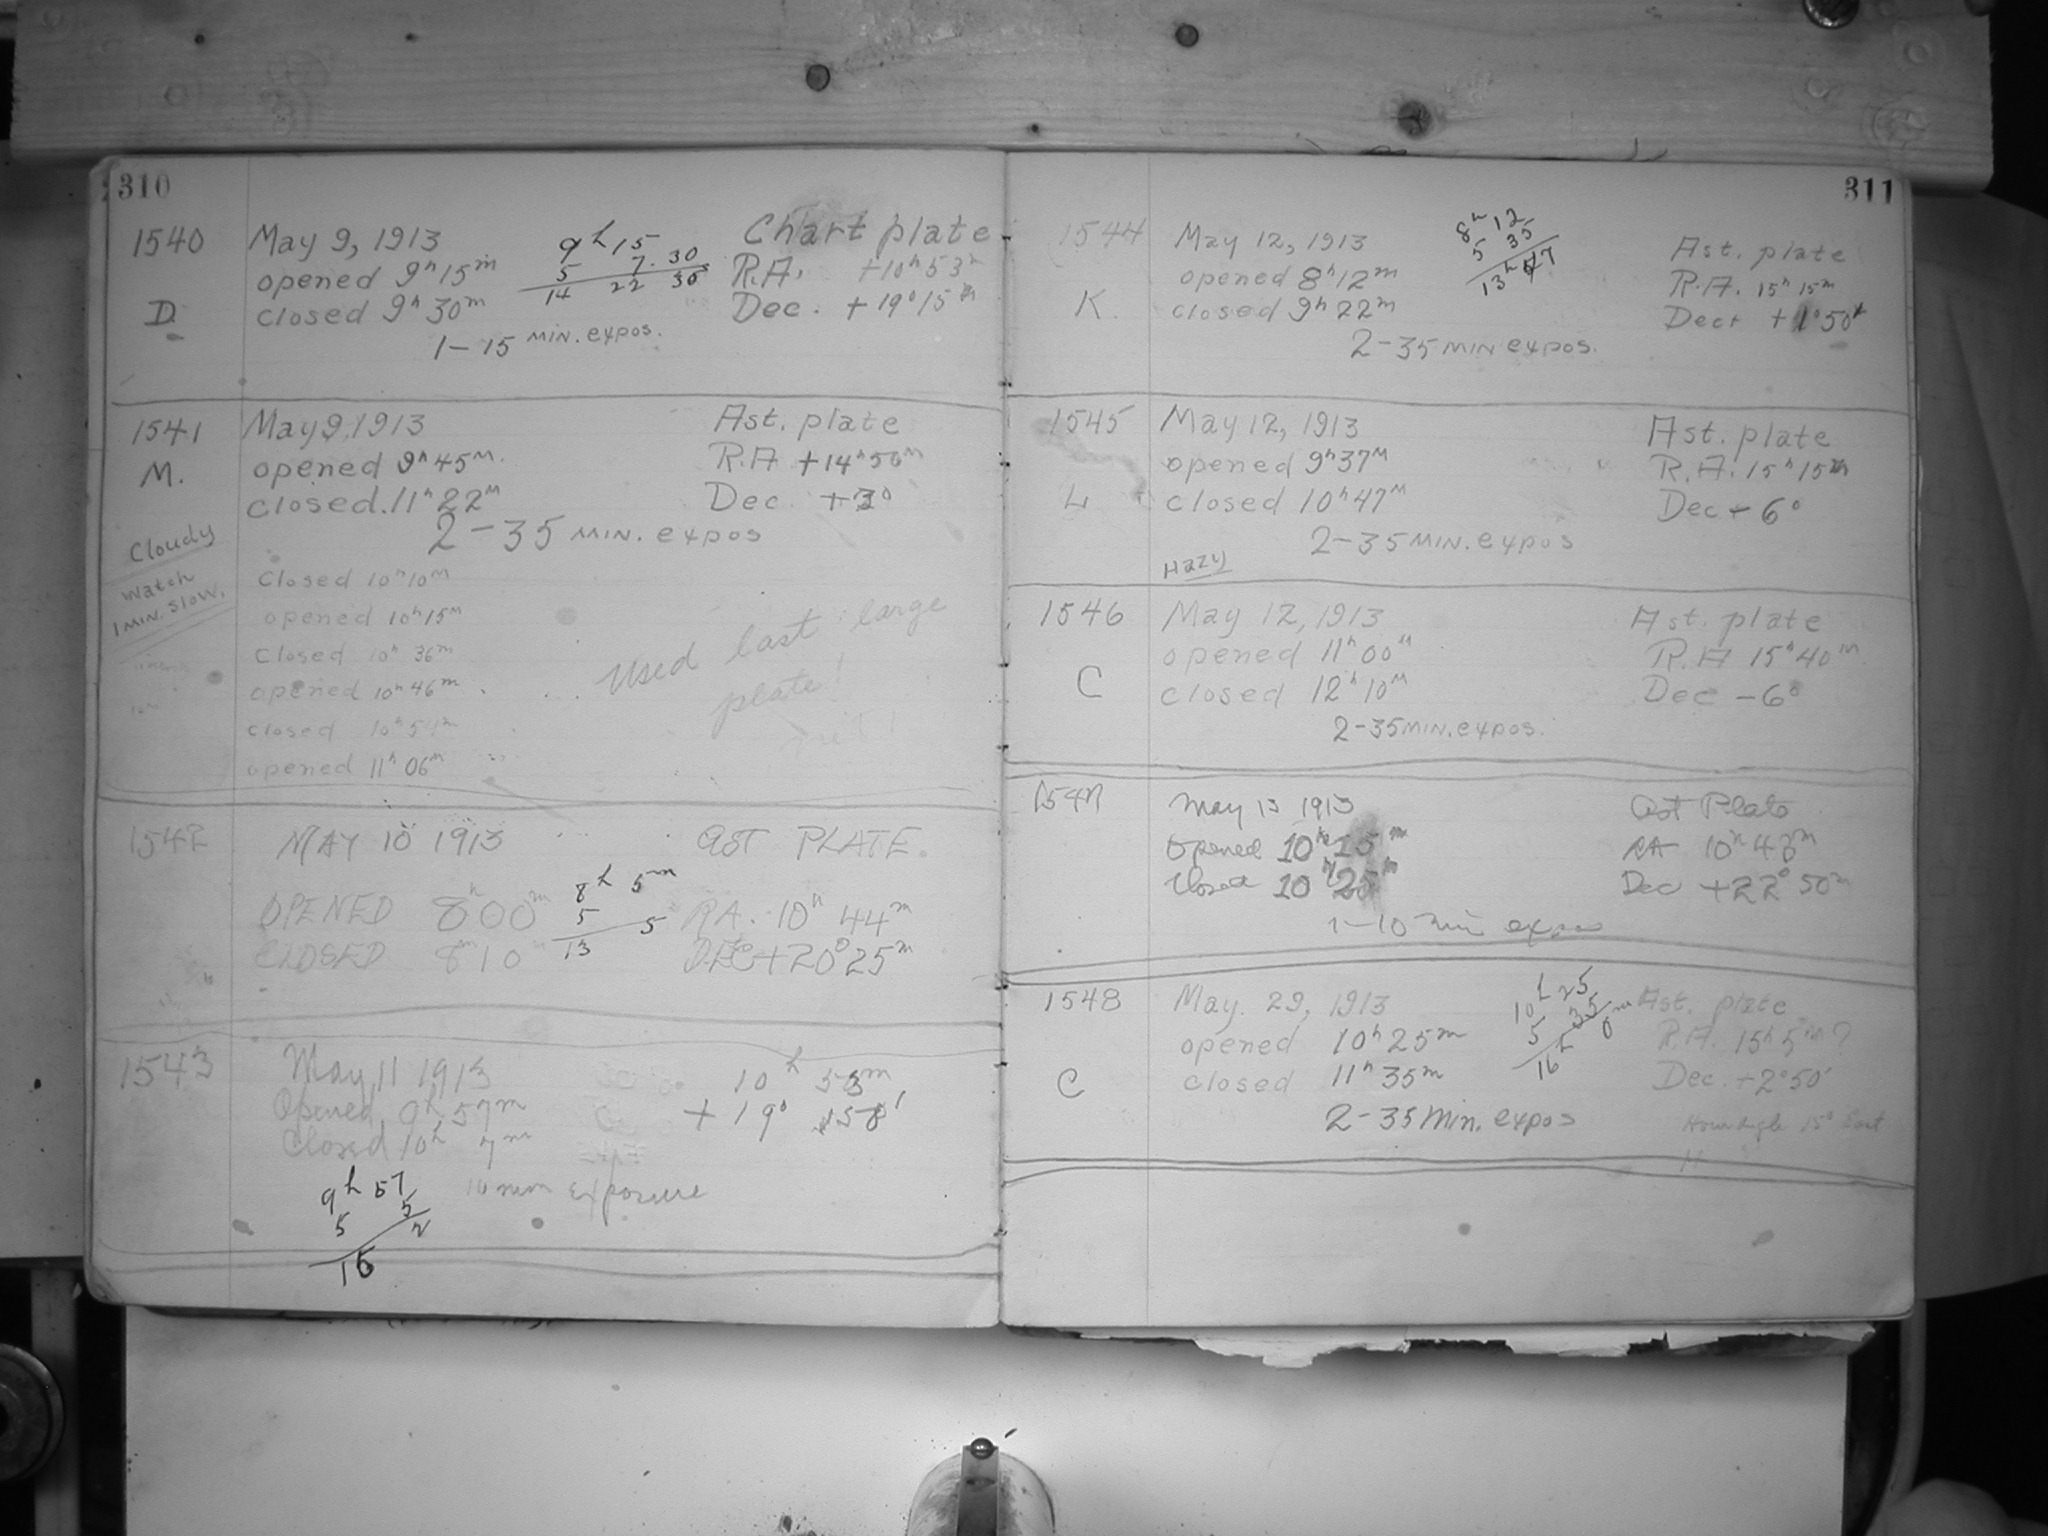 310
1540
D.
May 9, 1913
opened 9h 15m
closed 9h 30m
1-15 MIN. expos.
9h 15
5 7. 30
14 22 30
Chart plate
R.A. +10h 53m
Dec. +19° 15m
1541
M.
Cloudy
Watch
1 MIN. SLOW.
May 9, 1913
opened 9h 45m.
closed. 11h 22m
2-35 MIN. expos
Ast. plate
R.A +14h 50m
Dec. +3°
Closed 10h 10m
opened 10h 15m
Closed 10h 36m
opened 10h 46m
closed 10h 54m
opened 11h 06m
Used last large
plate!
1542
MAY 10 1913
OPENED 8h 00m
CLOSED 8h 10m
8h 5m
5
13 5
AST PLATE.
RA. 10h 44m
DEC +20° 25m
1543
May 11 1913
Opened 9h 57m
Closed 10h 7m
10h 53m
+19° 158'
10 mm Exposure
9h 57
5 5
15 2
311
1544
K.
May 12, 1913
opened 8h 12m
closed 9h 22m
2-35 MIN expos.
8h 12
5 35
13h 47
Ast. plate
R.A. 15h 15m
Dec. +1° 50'
1545
L
May 12, 1913
opened 9h 37m
closed 10h 47m
2-35 MIN. expos
Hazy
Ast. plate
R.A. 15h 15m
Dec - 6°
1546
C
May 12, 1913
opened 11h 00m
closed 12h 10m
2-35 MIN. expos.
Ast. plate
R.A 15h 40m
Dec -6°
1547
May 13 1913
Opened 10h 15m
Closed 10h 25m
1-10 min expos
Ast Plate
RA 10h 48m
Dec +22° 50m
1548
C
May. 29, 1913
opened 10h 25m
closed 11h 35m
2-35 Min. expos
10h 25
5 35
16h 0m
Ast. plate
R.A. 15h 5m?
Dec. +2° 50'
Hour angle 15° East